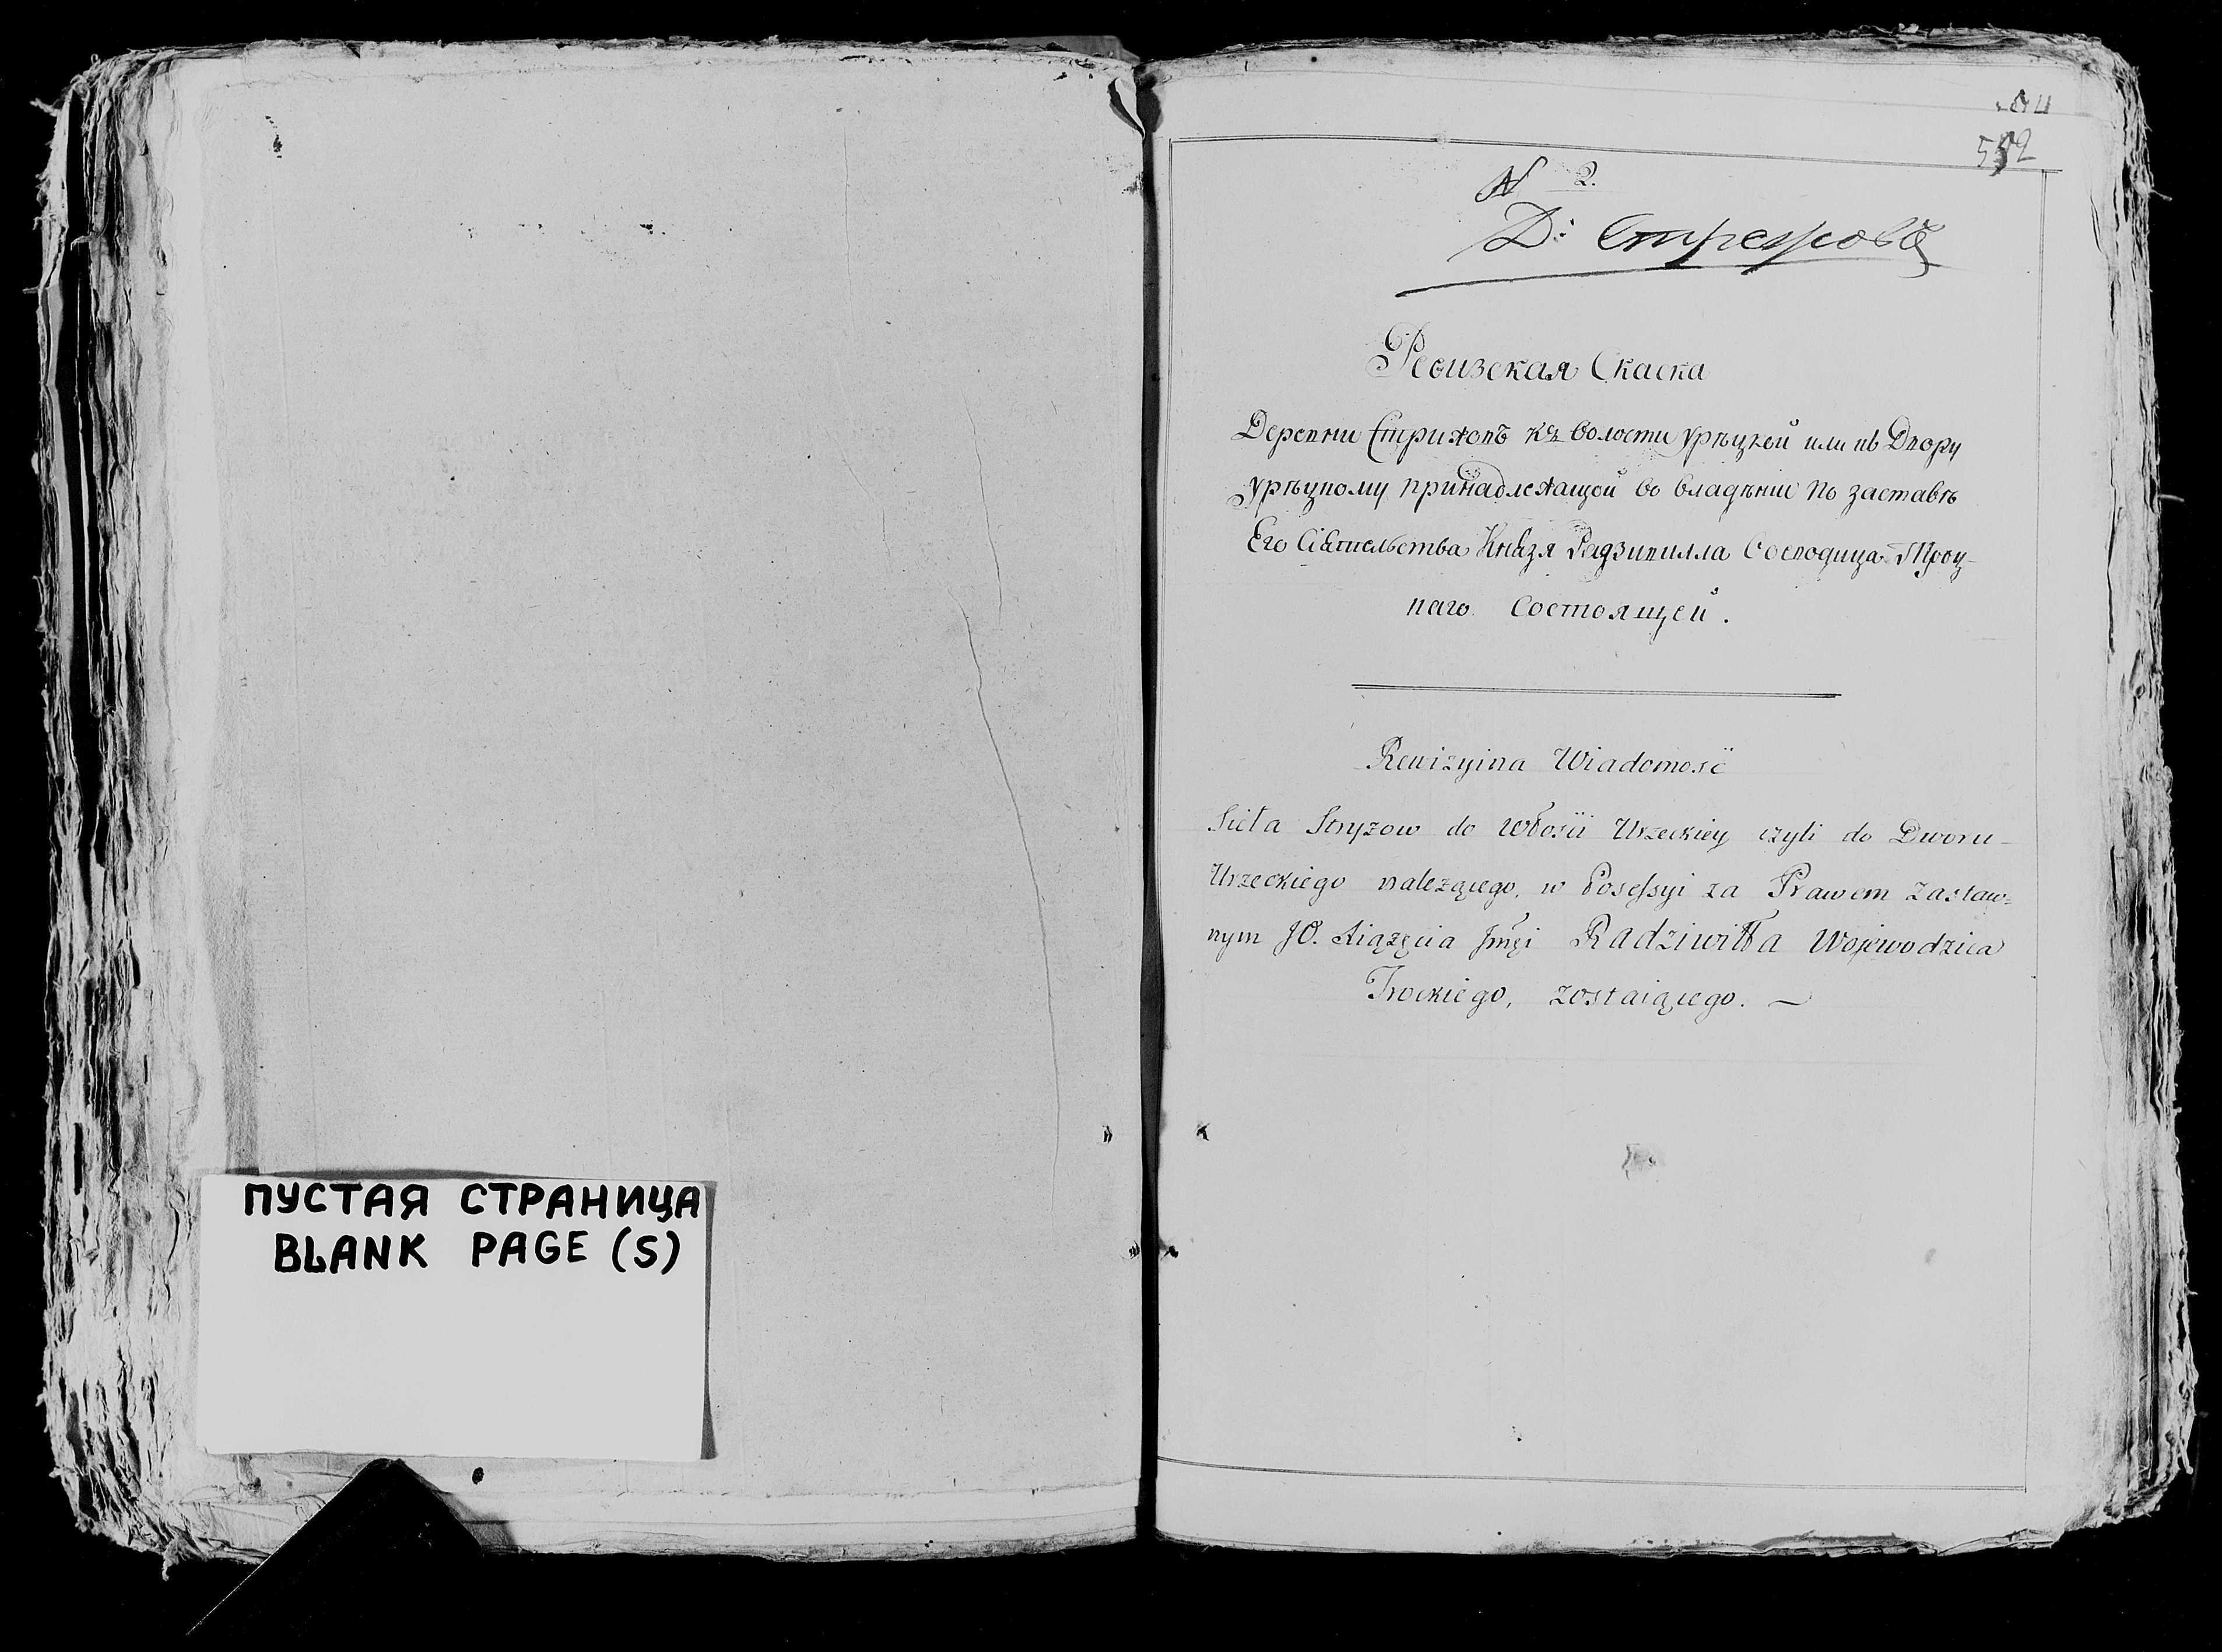 ПУСТАЯ СТРАНИЦА
BLANK PAGE (S)
552
N 2.
Д:
Ревизская Скаска
Деревни Стрижовъ къ волости Урѣцкой или къ Двору
Урѣцкому принадлежащой во владѣнiи по заставѣ
Его Сiятельства Князя Радзивилла Воеводица Троц-
каго состоящей.
Rewizyina Wiadomość
Sieła Stryzow do Włości Urzeckiey czyli do Dworu
Urzeckiego należącego, w Posessyi za Prawem zastaw=
nym JO. Xiążęcia Jmći Radziwiłła Wojewodzica
Trockiego, zostaiącego. —